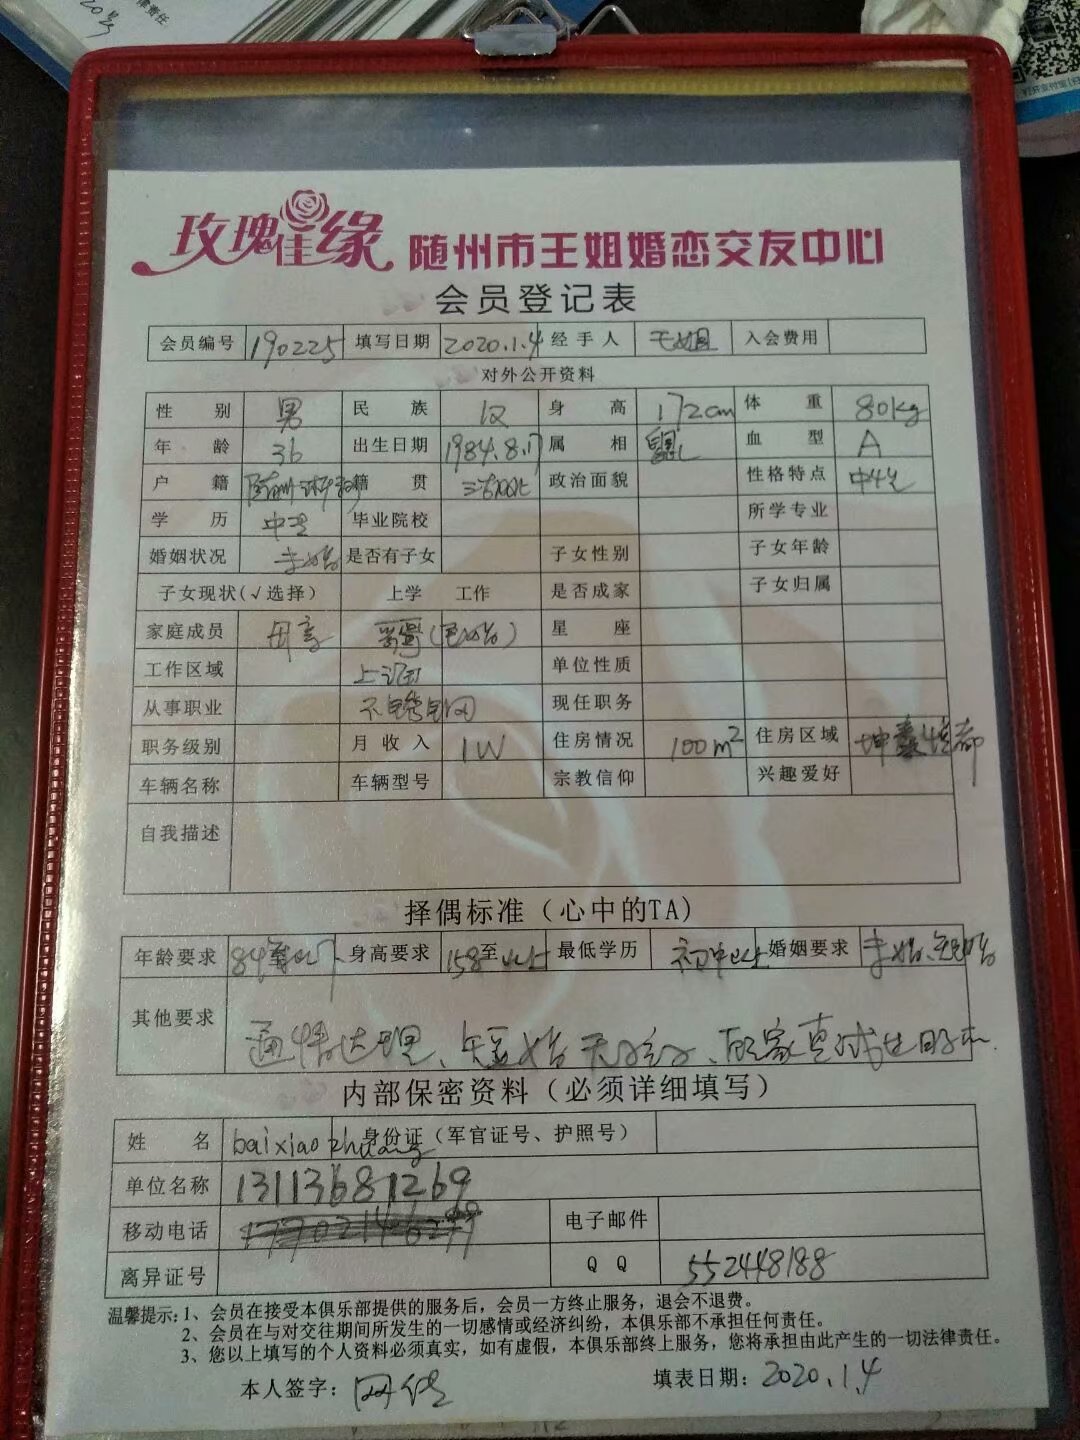 20号
律责任
玫瑰佳缘 随州市王姐婚恋交友中心
会员登记表
会员编号 190225 填写日期 2020.1.4 经手人 王姐 入会费用
对外公开资料
性别 男 民族 汉 身高 172cm 体重 80kg
年龄 36 出生日期 1984.8.17 属相 鼠 血型 A
户籍 籍贯 政治面貌 性格特点
学历 中专 毕业院校 所学专业
婚姻状况 未婚 是否有子女 子女性别 子女年龄
子女现状(√选择) 上学 工作 是否成家 子女归属
家庭成员 母亲 (已婚) 星座
工作区域 单位性质
从事职业 不锈钢 现任职务
职务级别 月收入 1W 住房情况 100m² 住房区域
车辆名称 车辆型号 宗教信仰 兴趣爱好
自我描述
择偶标准(心中的TA)
年龄要求 84至 身高要求 158至以上 最低学历 初中以上 婚姻要求 未婚、短婚
其他要求 通情达理、短婚无孩、顾家真诚
内部保密资料(必须详细填写)
姓名 baixiaozhuang 身份证(军官证号、护照号)
单位名称 13113681269
移动电话 电子邮件
离异证号 QQ 552448188
温馨提示:1、会员在接受本俱乐部提供的服务后,会员一方终止服务,退会不退费。
2、会员在与对交往期间所发生的一切感情或经济纠纷,本俱乐部不承担任何责任。
3、您以上填写的个人资料必须真实,如有虚假,本俱乐部终止服务,您将承担由此产生的一切法律责任。
本人签字: 网传 填表日期: 2020.1.4